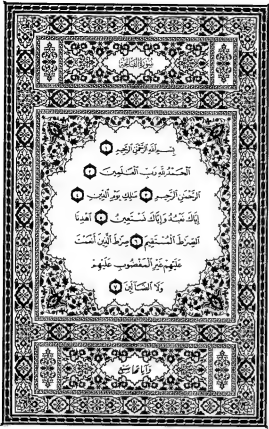 سُورَةُ الْفَاتِحَةِ
بِسْمِ اللَّهِ الرَّحْمَٰنِ الرَّحِيمِ ١
الْحَمْدُ لِلَّهِ رَبِّ الْعَالَمِينَ ٢
الرَّحْمَٰنِ الرَّحِيمِ ٣ مَالِكِ يَوْمِ الدِّينِ ٤
إِيَّاكَ نَعْبُدُ وَإِيَّاكَ نَسْتَعِينُ ٥ اهْدِنَا
الصِّرَاطَ الْمُسْتَقِيمَ ٦ صِرَاطَ الَّذِينَ أَنْعَمْتَ
عَلَيْهِمْ غَيْرِ الْمَغْضُوبِ عَلَيْهِمْ
وَلَا الضَّالِّينَ ٧
وَآيَاتُهَا سَبْعٌ